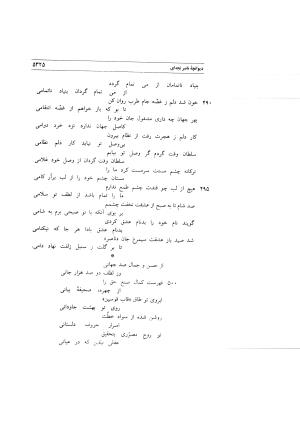 دیوانچهٔ ناصر بجه‌ای
۵۳۳۵
بنیاد ناتمامان از می تمام گردد
از می تمام گردان بنیاد ناتمامی
۴۹۰ خون شد دلم ز غصّه جام طرب روان کن
تا بو که باز خواهم از غصّه انتقامی
بهر جهان چه داری مشغول جان خود را
کاصل جهان ندارد نزد خرد دوامی
کار دلم ز هجرت رفت از نظام بیرون
بی‌وصل تو نیابد کار دلم نظامی
سلطان وقت گردم گر وصل تو بیابم
سلطان وقت گردان از وصل خود غلامی
ترکانه چشم مستت سرمست کرد ما را
مستان چشم خود را از لب برآر کامی
۴۹۵ هیچ از لب چو قندت چشم طمع ندارم
ما را تمام باشد از لطف تو سلامی
صد شام تا به صبح از عشقت نخفت چشمم
بر بوی آنکه با تو صبحی برم به شامی
گویند نام خود را بدنام عشق کردی
بدنام عشق بادا هر جا که نیکنامی
شد صید باز عشقت سیمرغ جان ناصر
تا بر گلت ز سنبل زلفت نهاد دامی
*
از حسن و جمال صد جهانی
وز لطف دو صد هزار جانی
۵۰۰ فهرست کمال صنع حق را
از چهره، صحیفهٔ بیانی
ابروی تو طاق «قاب قوسین»
روی تو بهشت جاودانی
روشن شده از سواد خطّت
اسرار حروف داستانی
تو روح مصوّری بتحقیق
معنی یقین که در عیانی